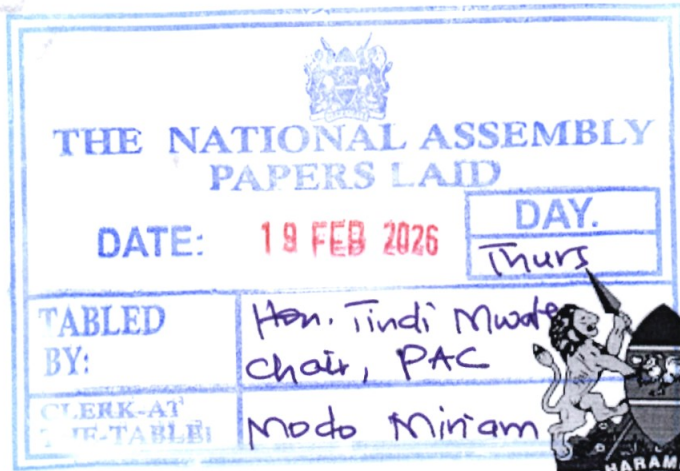 THE NATIONAL ASSEMBLY
PAPERS LAID
DATE: 19 FEB 2026
DAY.
Thurs
TABLED BY:
Hon. Tindi
Chair, PAC
CLERK-AT THE-TABLE:
Modo Miriam
HARAM